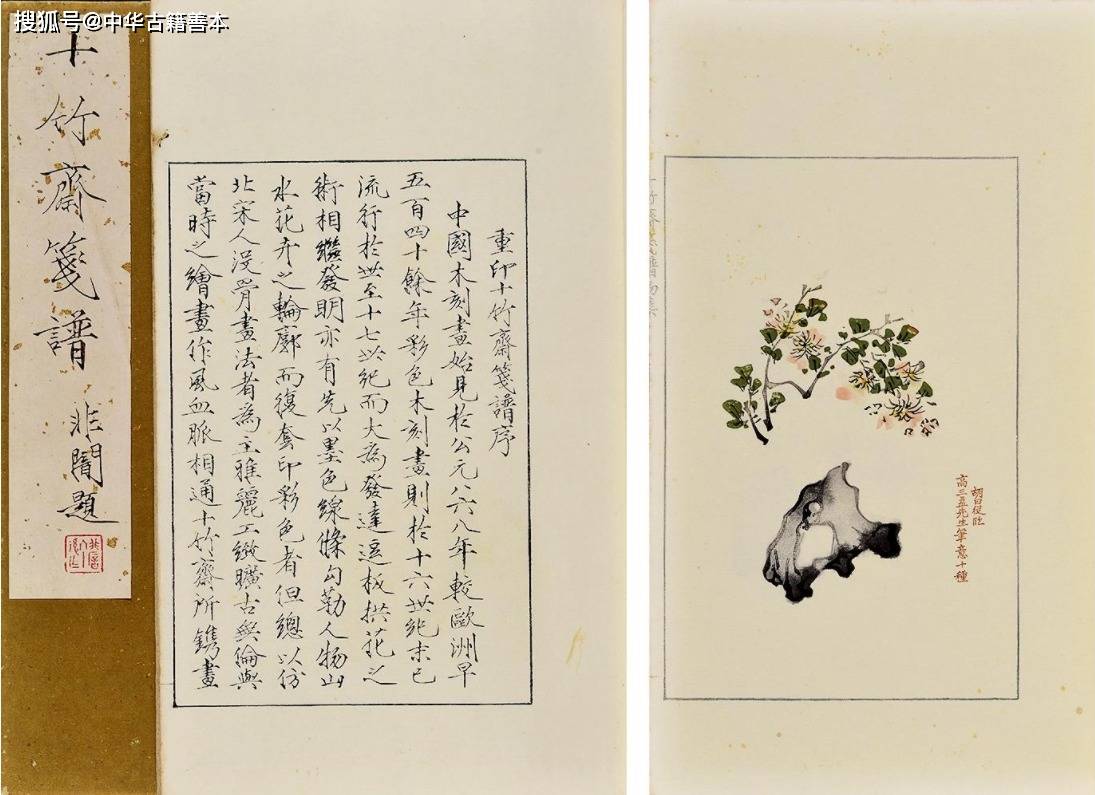 搜狐号@中华古籍善本
十竹齋箋譜
非闇題
重印十竹齋箋譜序
中國木刻畫始見於公元八六八年較歐洲早
五百四十餘年彩色木刻畫則於十六世紀末已
流行於世至十七世紀而大為發達逗板拱花之
術相繼發明亦有先以墨色線條勾勒人物山
水花卉之輪廓而復套印彩色者但總以仿
北宋人沒骨畫法者為主雅麗工緻曠古無倫與
當時之繪畫作風血脈相通十竹齋所鐫畫
胡曰從臨
高三益先生筆意十種